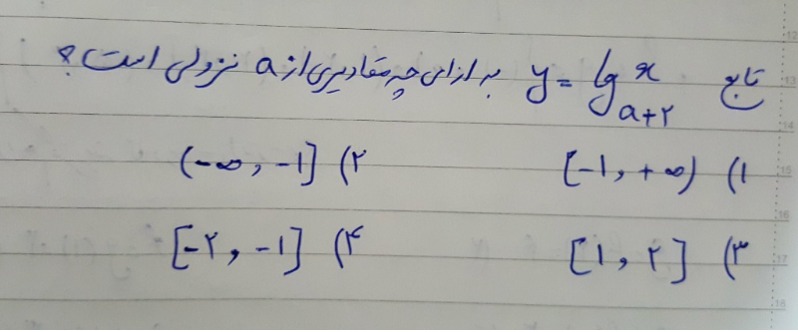 تابع y = lg x a+۲ به ازای چه مقادیری از a نزولی است؟
۱) [-۱, +∞) ۲) (-∞, -۱]
۳) [۱, ۲] ۴) [-۲, -۱]